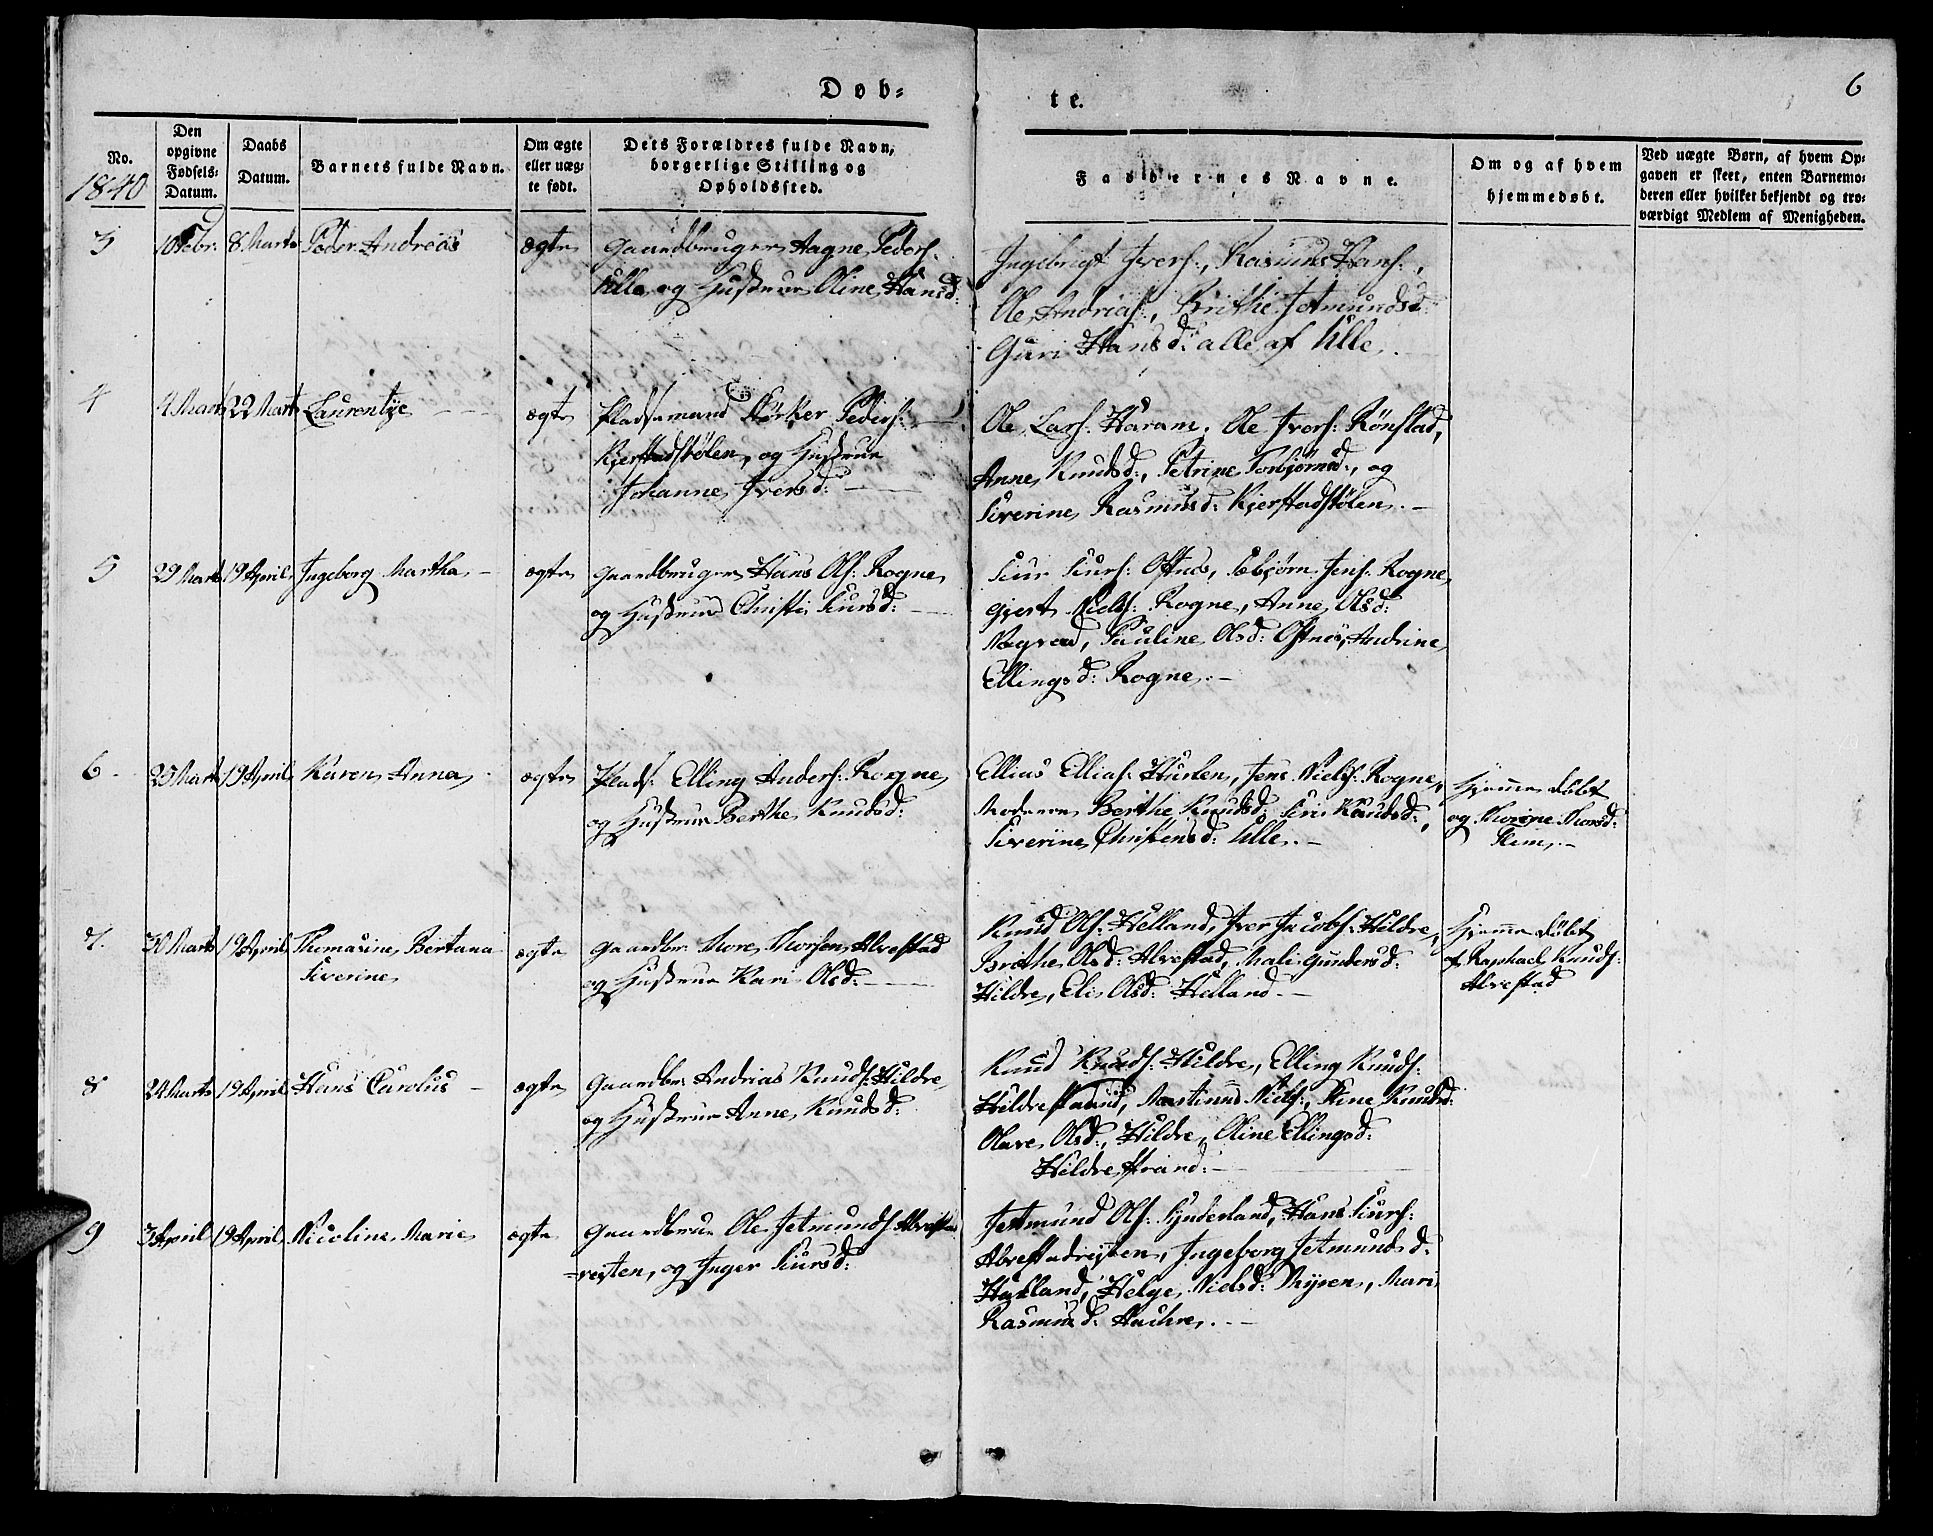 Døb-
te.
6
No.
1840
Den opgivne Fødsels-Datum.
Daabs Datum.
Barnets fulde Navn.
Om ægte eller uæg-te født.
Dets Forældres fulde Navn, borgerlige Stilling og Opholdssted.
Faddernes Navne.
Om og af hvem hjemmedøbt.
Ved uægte Børn, af hvem Op-gaven er skeet, enten Barnemo-deren eller hvilket bekjendt og tro-værdigt Medlem af Menigheden.
3 10 Febr. 8 Marts Peder Andreas ægte
Gaardbruger Aagne Peders:
Ulla og Hustrue Oline Hansd:
Ingebrigt Ivers:, Rasmus Hans:,
Ole Andrias:, Brithe Jetmundsd:
Guri Hansd: alle af Ulle.
4 4 Marts 22 Marts Laurentze ægte
Pladsemand Størker Peders:
Kjerstadstølen, og Hustrue
Johanne Iversd:
Ole Lars: Haram, Ole Ivers: Rönstad,
Anne Knudsd:, Petrine Torbjørnsd:, og
Siverine Rasmusd: Kjerstadstölen.
5 29 Marts 19 April Ingeborg Martha ægte
Gaardbruger Hans Ols: Rogne,
og Hustrue Christi Siursd:
Siur Siurs: Oftnes, Esbjørn Jens: Rogne,
Gjert Niels: Rogne, Anne Olsd:
Nogved, Pauline Olsd: Oftnes, Andrine
Ellingsd: Rogne.
6 25 Marts 19 April Karen Anna ægte
Plads: Elling Anders: Rogne,
og Hustrue Berthe Knudsd:
Ellias Ellias: Hurlen, Jens Niels: Rogne,
Moderen Berthe Knudsd, Siri Knudsd:,
Siverine Christensd: Ulle.
Hjemmedøbt
og Thorine Thorsd:
Slem.
7. 30 Marts 19 April Thomasine Bertana
Siverine
ægte
Gaardbr: Thore Thorsen Alvestad
og Hustrue Kari Olsd:
Knud Ols: Helland, Iver Jacobs: Hildre,
Brithe Olsd: Alvestad, Mali Gundersd:
Hildre, Eli Olsd: Helland.
Hjemmedøbt
af Raphael Knuds:
Alvestad
8 24 Marts 19 April Hans Carolus ægte
Gaardbr: Andrias Knuds: Hildre,
og Hustrue Anne Knudsd:
Knud Knuds: Hildre, Elling Knuds:
Hildrestrand, Martinus Niels:, Stine Knudsd:
Olave Olsd:, Hildre, Oline Ellingsd:
Hildrestrand.
9 3 April 19 April Nicoline Marie ægte
Gaardbrug: Ole Jetmunds: Alvestad
=reiten, og Inger Siursd:
Jetmund Ols: Synderland, Hans Siurs:
Alvestadreiten, Ingeborg Jetmundsd:
Haaland, Helge Nielsd: Mysen, Mari
Rasmusd: